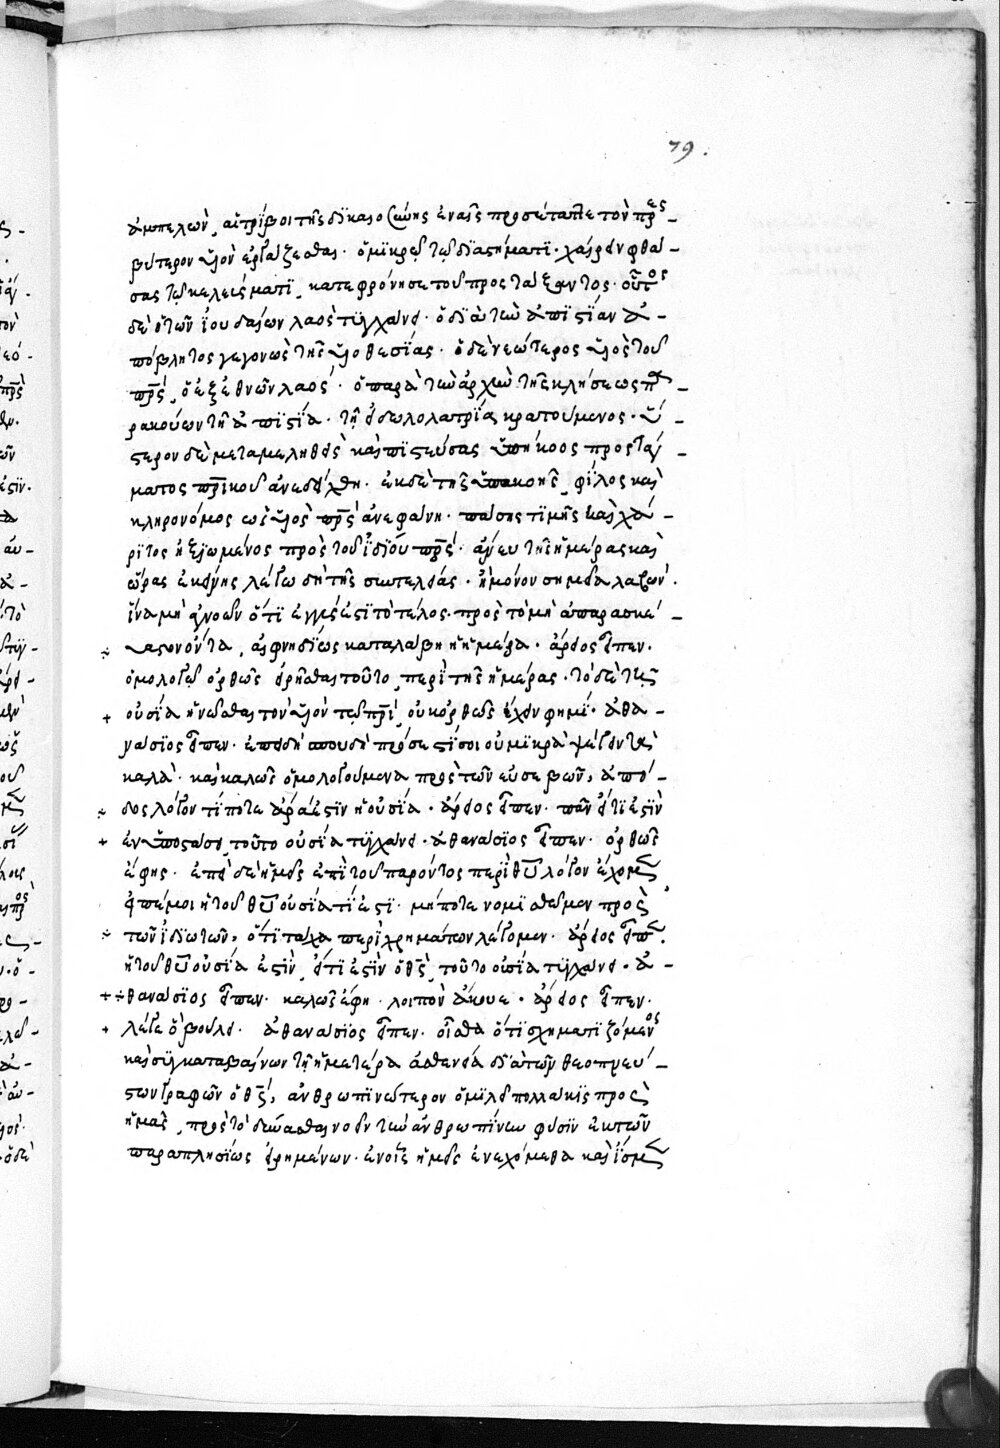 79.
ἀμπελῶν, αἱ τρίβοι τῆς δικαιοσύνης ἐν αἷς προσέταττε τὸν πρεσ-
βύτερον υἱὸν ἐργάζεσθαι. ὁ μικρῷ τῷ διαστήματι. χαίρειν φρά-
σας τῷ κελεύσματι, κατεφρόνησε τοῦ προστάξαντος. οὗτος
δὲ ὁ τῶν ἰουδαίων λαὸς τυγχάνει. ὁ διὰ τὴν ἀπιστίαν ἀ-
πόβλητος γεγονὼς τῆς υἱοθεσίας. ὁ δὲ νεώτερος υἱὸς τοῦ
πρς, ὁ ἐξ ἐθνῶν λαός. ὁ παρὰ τὴν ἀρχὴν τῆς κλήσεως πα-
ρακούων τῇ ἀπιστίᾳ. τῇ εἰδωλολατρίᾳ κρατούμενος. ὕ-
στερον δὲ μεταμεληθεὶς καὶ πιστεύσας ὑπήκοος προστάγ-
ματος πρικοῦ ἀνεδείχθη. ἐκ δὲ τῆς ὑπακοῆς, φίλος καὶ
κληρονόμος ὡς υἱὸς πρς ἀνεφάνη. πάσης τιμῆς καὶ χά-
ριτος ἠξιωμένος πρὸς τοῦ ἰδίου πρς. ἄνευ τῆς ἡμέρας καὶ
ὥρας ἐκείνης λέγω δὴ τῆς συντελείας. ἢ μόνον σημεῖα λαβών.
ἵνα μὴ ἀγνοεῖν ὅτι ἐγγύς ἐστι τὸ τέλος. πρὸς τὸ μὴ ἀπαρασκεύ-
αστον ὄντα, αἰφνηδίως καταλάβῃ ἡ ἡμέρα. ἄρειος εἶπεν.
ὁμολογῶ ὀρθῶς εἰρῆσθαι τοῦτο, περὶ τῆς ἡμέρας. τὸ δὲ τῇ
οὐσίᾳ ἡνῶσθαι τὸν υἱὸν τῷ πρι, οὐκ ὀρθῶς ἔχειν φημί. ἀθα-
νάσιος εἶπεν. ἐπειδὴ σπουδὴ πρόσεστί σοι οὐ μικρὰ ψέγειν τὰ
καλά. καὶ καλῶς ὁμολογούμενα πρὸς τῶν εὐσεβῶν, ἀπό-
δος λόγον τί ποτε ἄρα ἐστὶν ἡ οὐσία. ἄρειος εἶπεν. πᾶν εἴ τι ἐστὶν
ἐν ὑποστάσει τοῦτο οὐσία τυγχάνει. ἀθανάσιος εἶπεν. ὀρθῶς
ἔφης. ἐπεὶ δὲ ἡμεῖς ἐπὶ τοῦ παρόντος περὶ θυ λόγον ἔχομεν
εἰπέ μοι ἡ τοῦ θυ οὐσία τί ἐστι. μήποτε νομισθῶμεν πρὸς
τῶν ἰδιωτῶν, ὅτι τάχα περὶ χρημάτων λέγομεν. ἄρειος εἶπεν.
ἡ τοῦ θυ οὐσία ἐστὶν, εἴ τι ἐστὶν ὁ θς, τοῦτο οὐσία τυγχάνει. ἀ-
θανάσιος εἶπεν. καλῶς ἔφη. λοιπὸν ἄκουε. ἄρειος εἶπεν.
λέγε ὃ βούλει. ἀθανάσιος εἶπεν. οἶσθα ὅτι σχηματιζόμενος
καὶ συγκαταβαίνων τῇ ἡμετέρᾳ ἀσθενείᾳ διὰ τῶν θεοπνεύ-
στων γραφῶν ὁ θς, ἀνθρωπινώτερον ὁμιλεῖ πολλάκις πρὸς
ἡμᾶς, πρὸς τὸ δύνασθαι νοεῖν τὴν ἀνθρωπίνην φύσιν ἐκ τῶν
παραπλησίως εἰρημένων. ἐν οἷς ἡμεῖς ἐνεχόμεθα καὶ ἴσμεν